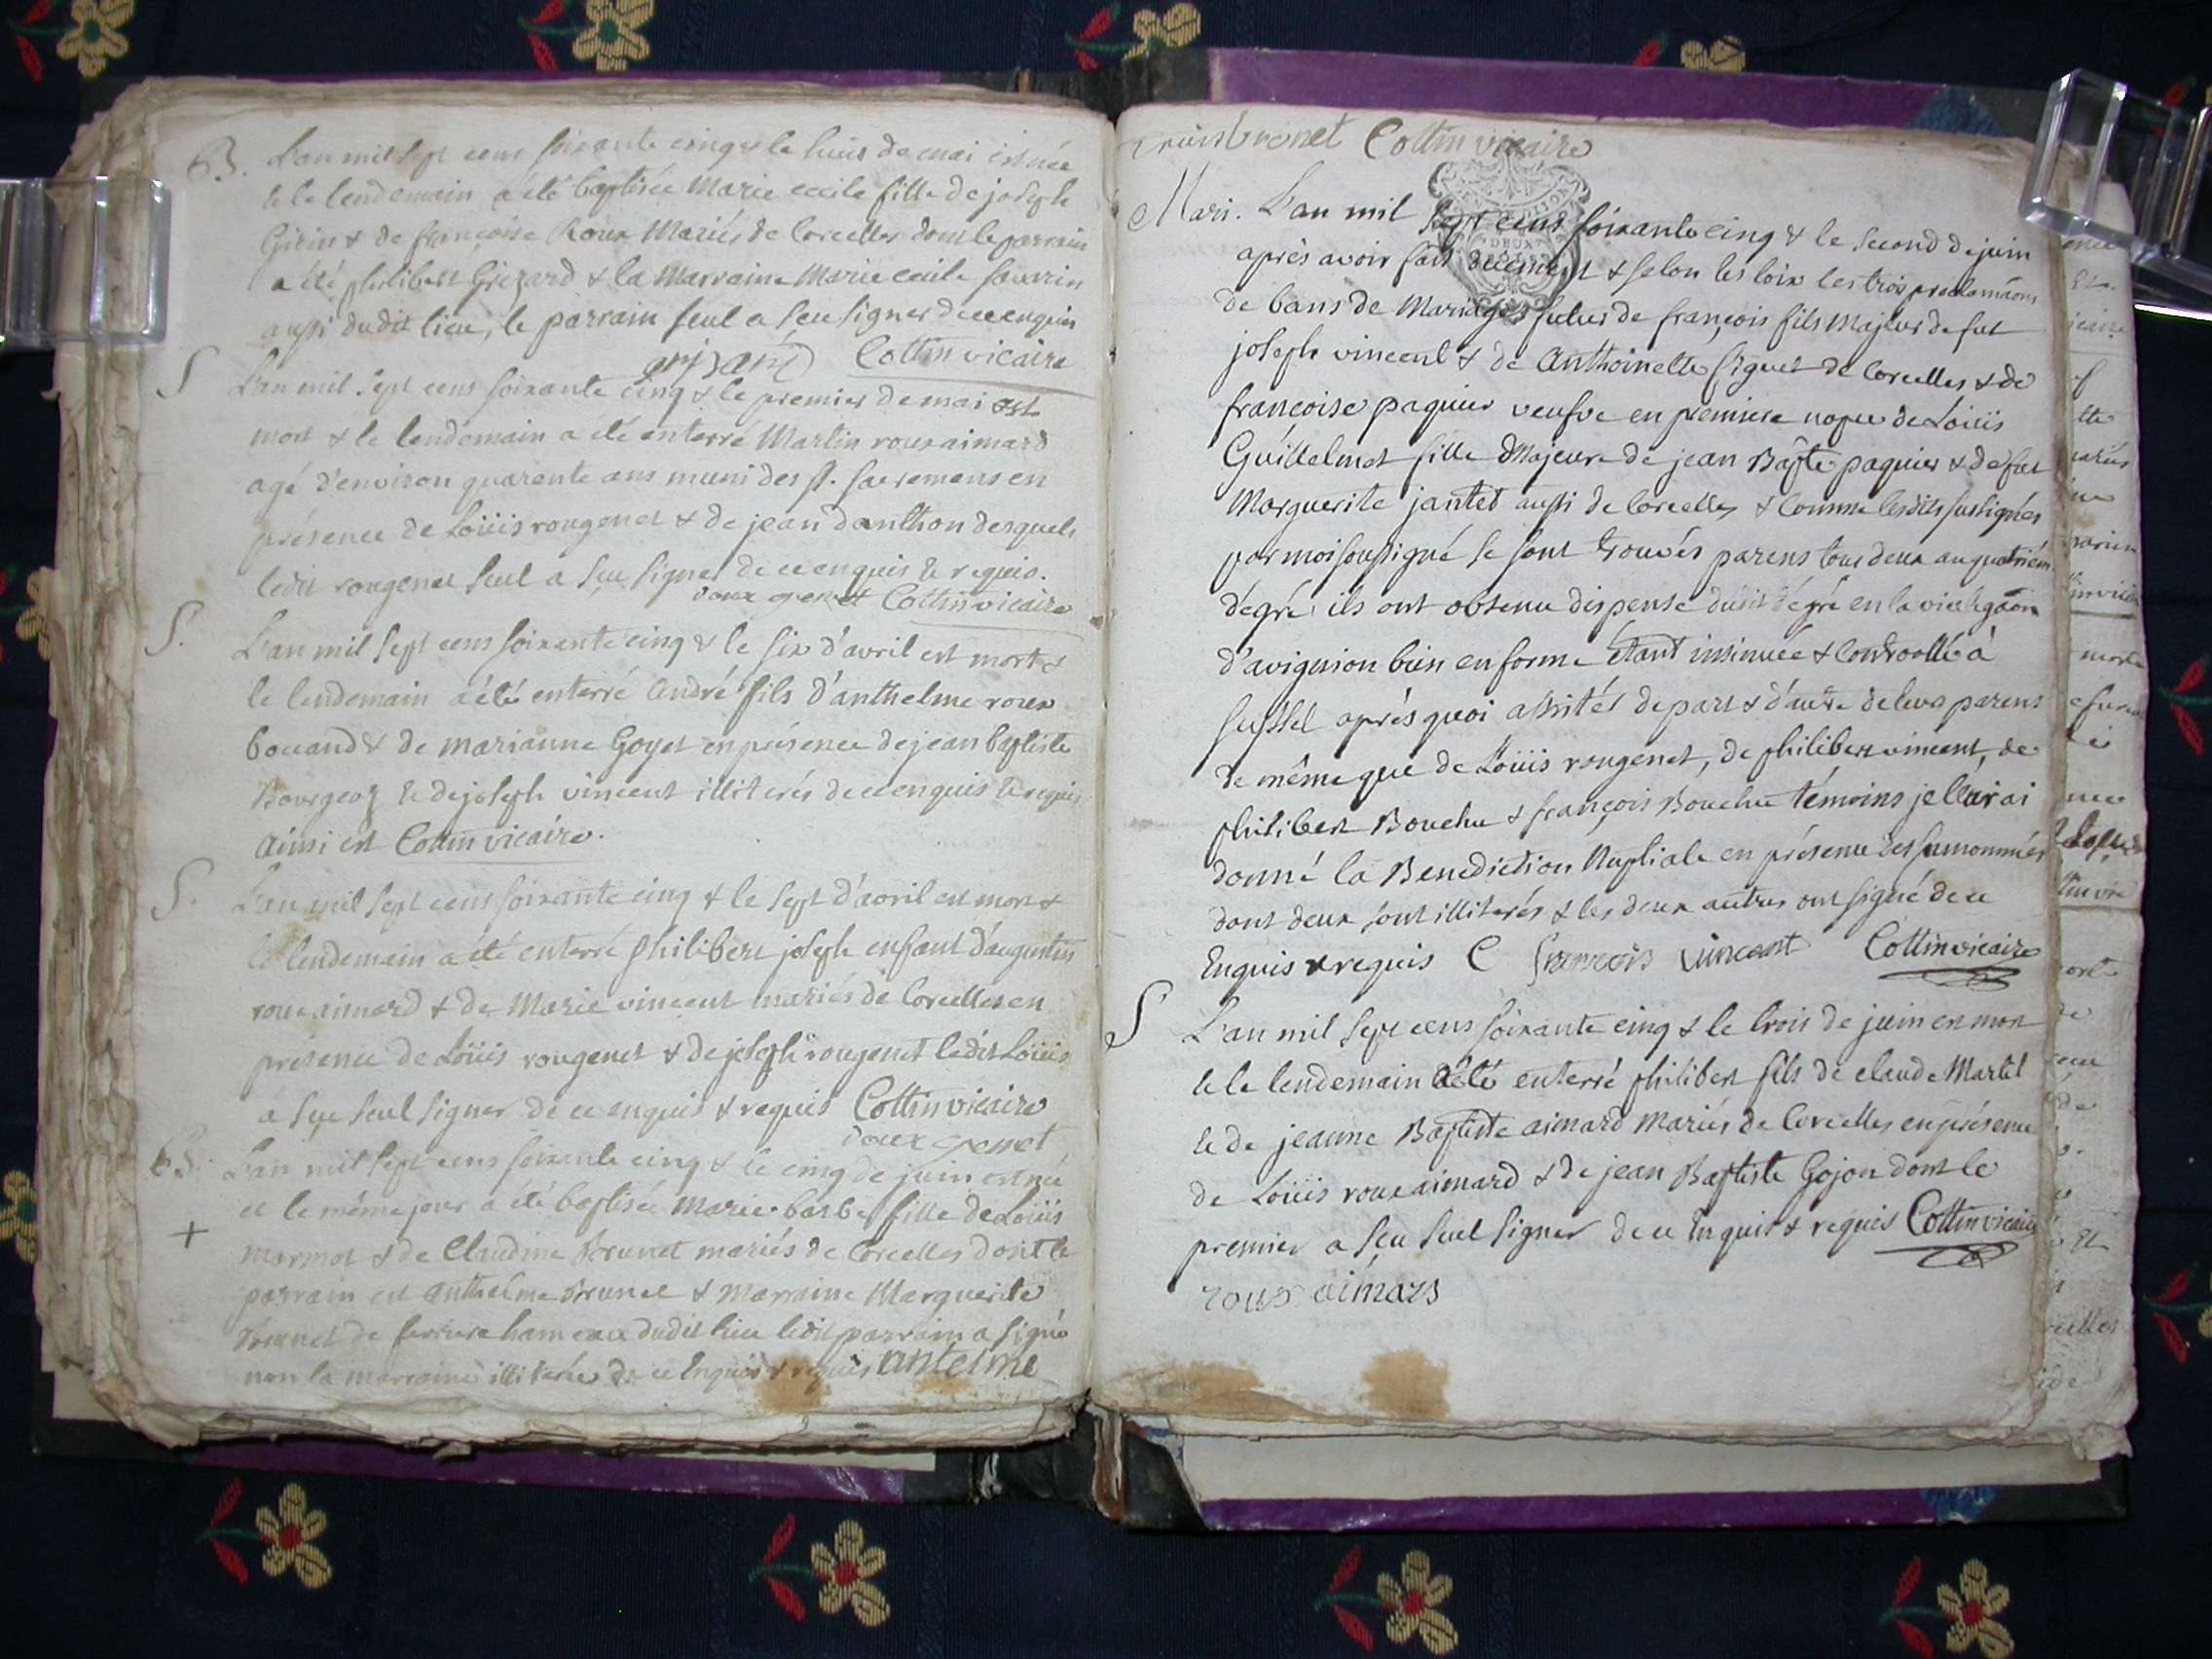 B. L'an mil sept cens soixante cinq & le huit de mai est née
& le lendemain a été baptisée Marie cecile fille de joseph
Girin & de françoise Roux Mariés de Corcelles dont le parrain
a été philibert Grezard & la Marraine Marie cecile
aussi dudit lieu, le parrain seul a sçu signer de ce enquis
Cottin vicaire
S L'an mil sept cens soixante cinq & le premier de mai est
mort & le lendemain a été enterré Martin roux aimard
agé d'environ quarente ans muni des st. sacremens en
présence de Loüis rougenet & de jean danthon desquels
ledit rougenet seul a sçu signer de ce enquis & requis.
roux genet Cottin vicaire
S. L'an mil sept cens soixante cinq & le six d'avril est mort &
le lendemain a été enterré andré fils d'anthelme roux
bouand & de marianne Goyet en présence de jean baptiste
Bourgeoz & de joseph vincent illiterés de ce enquis & requis
Ainsi est Cottin vicaire.
S. L'an mil sept cens soixante cinq & le sept d'avril est mort &
le lendemain a été enterré philibert joseph enfant d'augustin
roux aimard & de Marie vincent mariés de Corcelles en
présence de Loüis rougenet & de joseph rougenet ledit Loüis
a sçu seul signer de ce enquis & requis Cottin vicaire
roux genet
B. L'an mil sept cens soixante cinq & le cinq de juin est née
et le même jour a été baptisée Marie barbe fille de Loüis
+ marmot & de Claudine Brunet mariés de Corcelles dont le
parrain est anthelme Brunet & marraine Marguerite
Brunet de hameau dudit lieu ledit parrain a signé
non la marraine illiterée de ce Enquis & requis antelme
bronet Cottin vicaire
Mari. L'an mil sept cens soixante cinq & le second de juin
après avoir fait decement & selon les loix les trois proclamãons
de bans de Mariage futur de françois fils Majeur de fut
joseph vincent & de Anthoinette Siguet de Corcelles & de
francoise paquier veufve en premiere nopce de Loüis
Guillelmet fille Majeure de jean Bapte paquier & de fut
Marguerite jantet aussi de Corcelles & Comme lesdits susignés
par moi soussigné se sont trouvés parens tous deux au quatriém
dégré ils ont obtenu dispense dudit dégré en la vicelegãon
d'avignion bien en forme étant insinuée & Controollé à
seyssel après quoi assistés de part & d'autre de leurs parens
de même que de Loüis rougenet, de philibert vincent, de
philibert Bouchu & françois Bouchu témoins je leur ai
donné la Benediction Nuptiale en présence des surnommés
dont deux sont illiterés & les deux autres ont signé de ce
Enquis & requis francois vincent Cottin vicaire
S L'an mil sept cens soixante cinq & le trois de juin est mort
& le lendemain a été enterré philibert fils de claude Martel
& de jeanne Baptiste aimard Mariés de Corcelles en présence
de Loüis roux aimard & de jean Baptiste Gojon dont le
premier a sçu seul signer de ce Enquis & requis Cottin vicaire
roux aimars